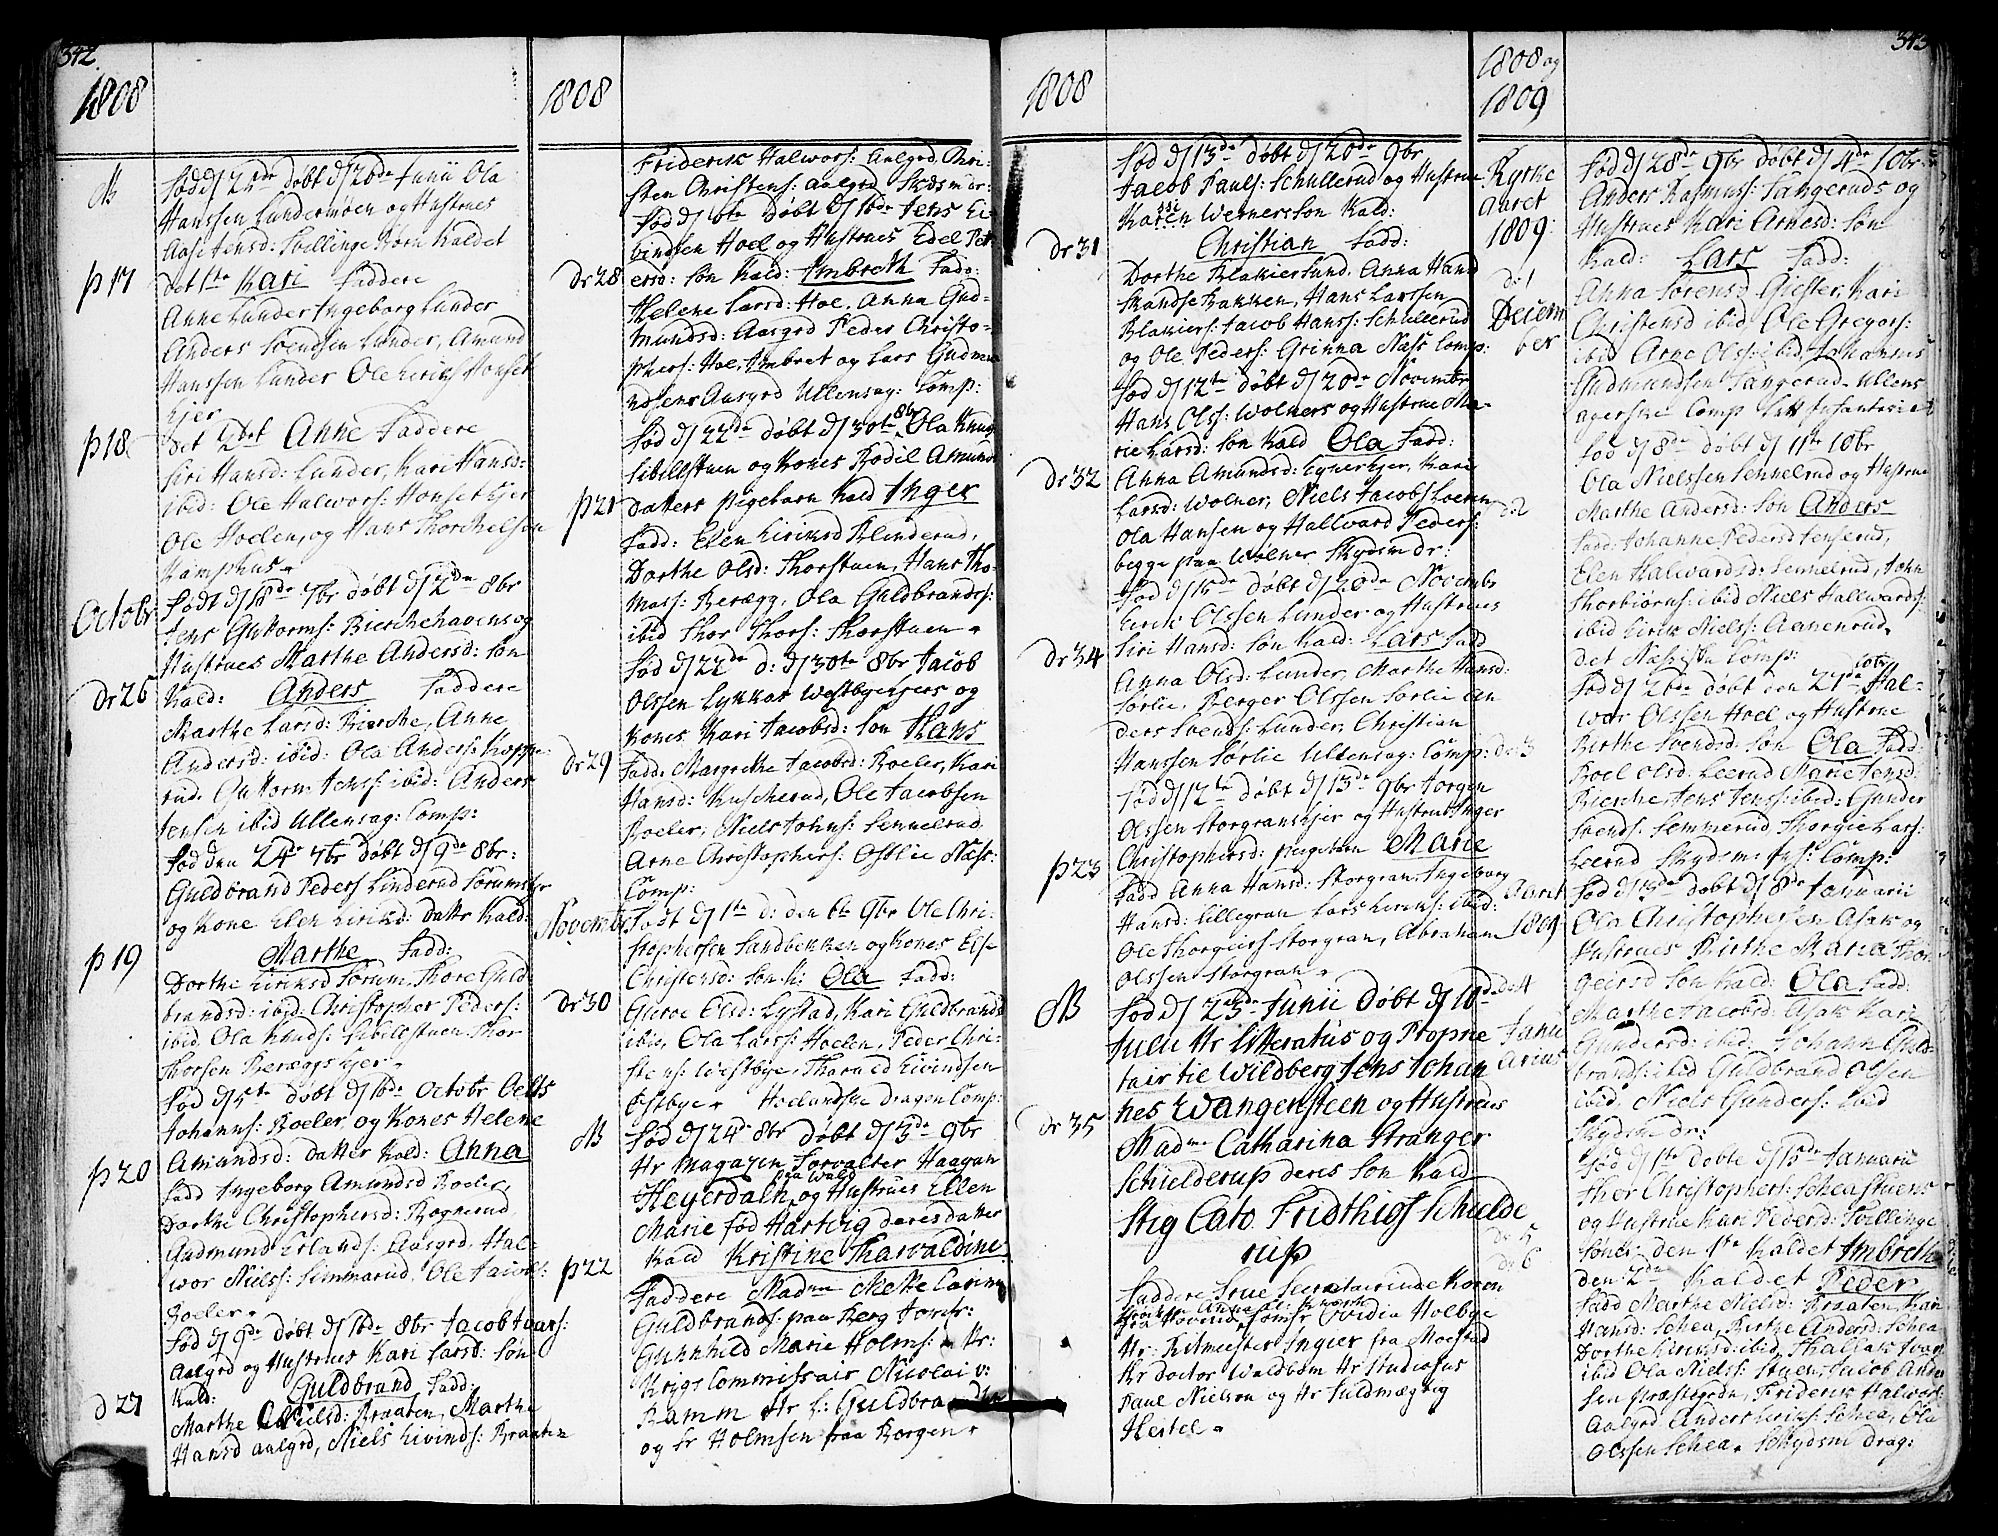 342
1808
NB
Fød d 24de døbt d 26de Junii Ola
Hanssen Lundermoen og Hustrues
Aase Jensd: Tvillinge Børn kaldet
p 17
det 1te Kari Faddere
Anne Lunder Ingeborg Lunder
Anders Svendsen Lunder, Amund
Hanssen Lunder Ole Eriks Honset
Ejer
p 18
Det 2det Anne Faddere
Siri Hansd: Lunder, Kari Hansd:
ibid: Ole Halwors: Honset Ejer
Ole Hoelen, og Hans Thorchelsen
Kamphus.
Octobr
Født d 18de 7br døbt d 2den 8br
Jens Guttorms: Bierchehavens og
Hustrues Marthe Andersd: Søn
Dr 26
Kald: Anders Faddere
Marthe Larsd: Bierche, Anne
Andersd: ibid: Ola Anders: Koppe
rud. Guttorm Jens: ibid: Anders
Jensen ibid Ullensag: Comp:
Fød den 24de 7br døbt d 9de 8br:
Guldbrand Peders Linderud Sørum
og Kone Elen Eiriksd: datter Kald
p 19
Marthe Fadd:
Dorthe Eiriksd Sørum, Thore Guld
brandsd: ibid: Christopher Peders:
ibid Ola Knuds: Sibilstuen Thor
Thorsen Berægg Ejer.
Fød d 5te døbt d 16de Octobr Oells
Johanns: Boeler og Kones Helene
p 20
Amundsd: datter kald: Anna
Fadd Ingeborg Amundsd Boeler,
Dorthe Christophersd: Rognerud
Gudmund Erlands: Aasgrd. Hal-
wor Niels: Simmarud. Ole Jacobs:
Boeler.
Fød d 9de døbt d 16de 8br Jacob Ivars:
Aalgrd og Hustrues Kari Larsd: Søn
d 27
Kald: Guldbrand Fadd:
Marthe Nielsd: Braaten, Marthe
Hansd Aalgrd, Niels Eivinds: Braaten
1808
Friderik Halwors: Aalgrd, Chri-
sten Christens: Aalgrd Skdsm dr:
Fød d 6te Døbt d 16de Jens Ei
vindsen Hoel og Hustrues Edel Pet
Dr 28
ersd: Søn Kald: Imbreth Fadd:
Helene Larsd: Hoe. Anna Gud-
mundsd: Aasgrd Peder Christo-
phers: Hoe, Imbret og Lars Gudmu
ndsens Aasgrd Ullensag: Comp:
Fød d 22de døbt d 30te 8br Ola Knuds
Sibillstuen og Kones Bodil Amunds
p 21
datters pigebarn Kald Inger
Fadd: Elen Eiriksd Blinderud,
Dorthe Olsd: Thorstuen, Hans Tho-
mass: Berægg, Ola Guldbrands:
ibid Thor Thors: Thorstuen.
Fød d 22de d: d 30te 8br Jacob
Olssen Lykkas Westbyeejers og
Kones Kari Jacobsd: Søn Hans
Dr 29
Fadd: Margrethe Jacobsd: Boeler, Kari
Hansd: Kuscherud, Ole Jacobsen
Boeler, Niels Johns: Sennelrud
Arne Christophers: Ostlie Næss:
Comp:
Novembr
Født d 1te d: den 6te 9br Ole Chri-
stophersen Sandbekken og Kones Else
Christensd: Søn K: Ola Fadd:
Dr 30
Guroe Elsd: Lystad, Kari Guldbrands
ibid, Ola Lars: Hoelen, Peder Chri-
stens: Westbye, Tharald Eivindsen
Østbye. Hoelandske Dragon Comp:
NB
Fød d 24de 8br døbt d 3de 9br
Hr Magazin Forvalter Haagan
Heyerdahl paa Wald og Hustrues Ellen
Marie fød Hartvig deres datter
p 22
Kald Kristine Tharvaldine
Faddere Madme Mette Carine
Guldbrands: paa Berg Jomfr:
Gunhild Marie Holms: Hr:
Krigs Commissair Nicolai v:
Ramm Hr l: Guldbra
og Hr Holmsen paa Borgen.
1808
Fød d 13de døbt d 20de 9br
Jacob Pauls: Schullerud og Hustrue
Karen Wernersson Kald:
Dr 31
Christian Fadd:
Dorthe Blakierlund. Anna Hansd
Skandsebakken, Hans Larssen
Blakiers: Jacob Hanss: Schullerud
og Ole Peders: Grinna Næss Comp:
Fød d 12te døbt d 20de Novembr
Hans Ols: Wolners og Hustrue Ma-
rie Larsd: Søn kald Ola Fadd:
Dr 32
Anna Amundsd: Ejer, Kari
Larsd: Wolner, Niels Jacobs Loeren
Ola Hansen og Hallvard Peders:
begge paa Wolner Skydsm dr:
Fød d 15de døbt d 20de Novembr
Eirik Olssen Lunder og Hustrues
Dr 34
Siri Hansd: Søn Kald: Lars Fadd
Anna Olsd: Lunder, Marthe Hansd:
Sørlie, Berger Olssen Sørlie An
ders Svends: Lunder, Christian
Hanssen Sørlie Ullensag: Comp:
Fød d 12te døbt d 13de 9br Jørgen
Olssen Storgransejer og Hustrue Inger
p 23
Christophersd: pigebarn Marie
Fadd Anna Hansd: Storgran, Ingeborg
Hansd: Lillegran Lars Eiriks: ibid:
Ole Thorgeirs: Storgran, Abraham
Olssen Storgran.
NB
Fød d 23de Junii Døbt d 10de
Julii Hr Litteratus og Proprie
tair tie Wildberg Jens Johan
nes Wangensteen og Hustrues
Dr 35
Madme Catharina Pranger
Schielderup deres Søn Kald
Stig Cato Fridthiof Schielde
rup
Faddere Frue Secretairinde Koren
fra Hovind Jomfr Ovidia Holbye
Hr: Ritmester Ingier fra Moestad
Hr Doctor Waldbom Hr Studiosus
Paul Nielsen og Hr Fuldmægtig
Hestel.
343
1808 og
1809
Kyrke
Aaret
1809.
d: 1
Decem
ber
Fød d 28de 9br døbt d 4de 10br
Anders Rasmus: Tangeruds og
Hustrues Kari Arnesd: Søn
Kald: Lars Fadd:
Anna Sørensd Giester, Kari
Christensd ibid Ole Gregors:
ibid Arne Ols: ibid, Johannes
Gudmundsen Tangerud. Ullens
agerske Comp Lett Infanterie
Fød d 8de døbt d 11te 10br
Ola Nielssen Sennelrud og Hustrue
d: 2
Marthe Andersd: Søn Anders
Fadd: Johanne Pedersd Jenserud,
Elen Halvardsd: Sennelrud, John
Thorbiørns: ibid Niels Hallwards:
ibid Eirik Niels: Aanerud.
det Næsiske Comp:
Fød d 26de døbt den 27de 10br Hal-
wor Olssen Hoel og Hustrue
d: 3
Birthe Svendsd: Søn Ola Fadd:
Boel Olsd: Leerud Marie Jensd:
Bierche, Jens Jens: ibid: Gunder
Svends. Semmerud Thorgie Lars:
Leerud Skydsm: Inf: Comp:
Aaret
1809
Fød d 3de døbt d 8de Januarii
Ola Christophersen Asak og
Hustrues Birthe Maria Thor
d: 4
geirsd Søn Kald: Ola Fadd:
Janu
Arius
Marthe Jacobsd: Asak Kari
Gundersd: ibid: Johann Guld-
brands: ibid Guldbrand Olsen
ibid: Niels Gunders: ibid
Skydsm dr:
Fød d 1te døbte d 15de Januarii
Ther Christophers: Scheastuens
og Hustrue Kari Pedersd: Tvillinge
d: 5
Søner den 1te kaldet Imbreth
d: 6
den 2den Kaldet Peder
Fadd Marthe Nielsd: Braaten, Kari
Hansd: Schea, Birthe Andersd: Schea
Dorthe Eiriksd: ibid, Thalack Ivars
ibid Ola Niels: Stuen, Jacob Ander
sen Præstegrdn, Friderik Halwors:
Aalgrd Anders Eiriks: Schea, Ola
Olssen Schea. Skydsm drag: